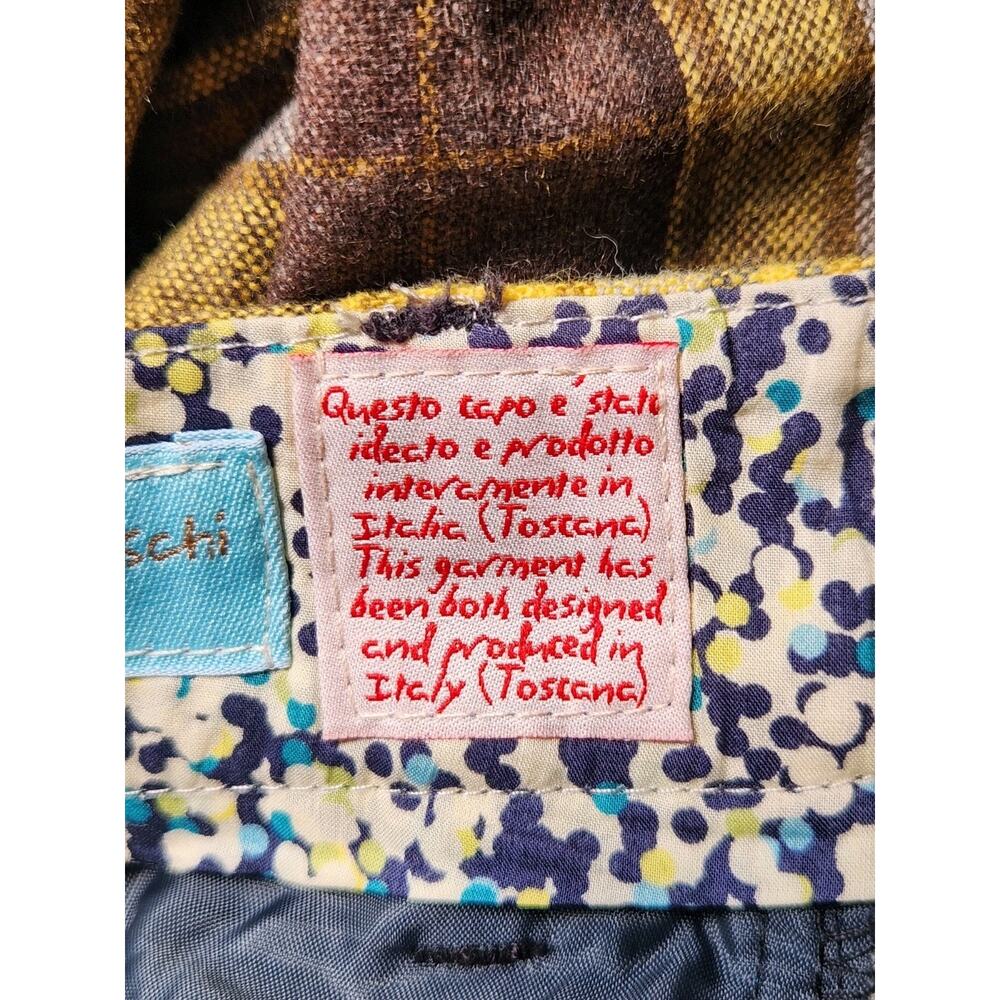 schi
Questo capo é stato
ideato e prodotto
interamente in
Italia (Toscana)
This garment has
been both designed
and produced in
Italy (Toscana)